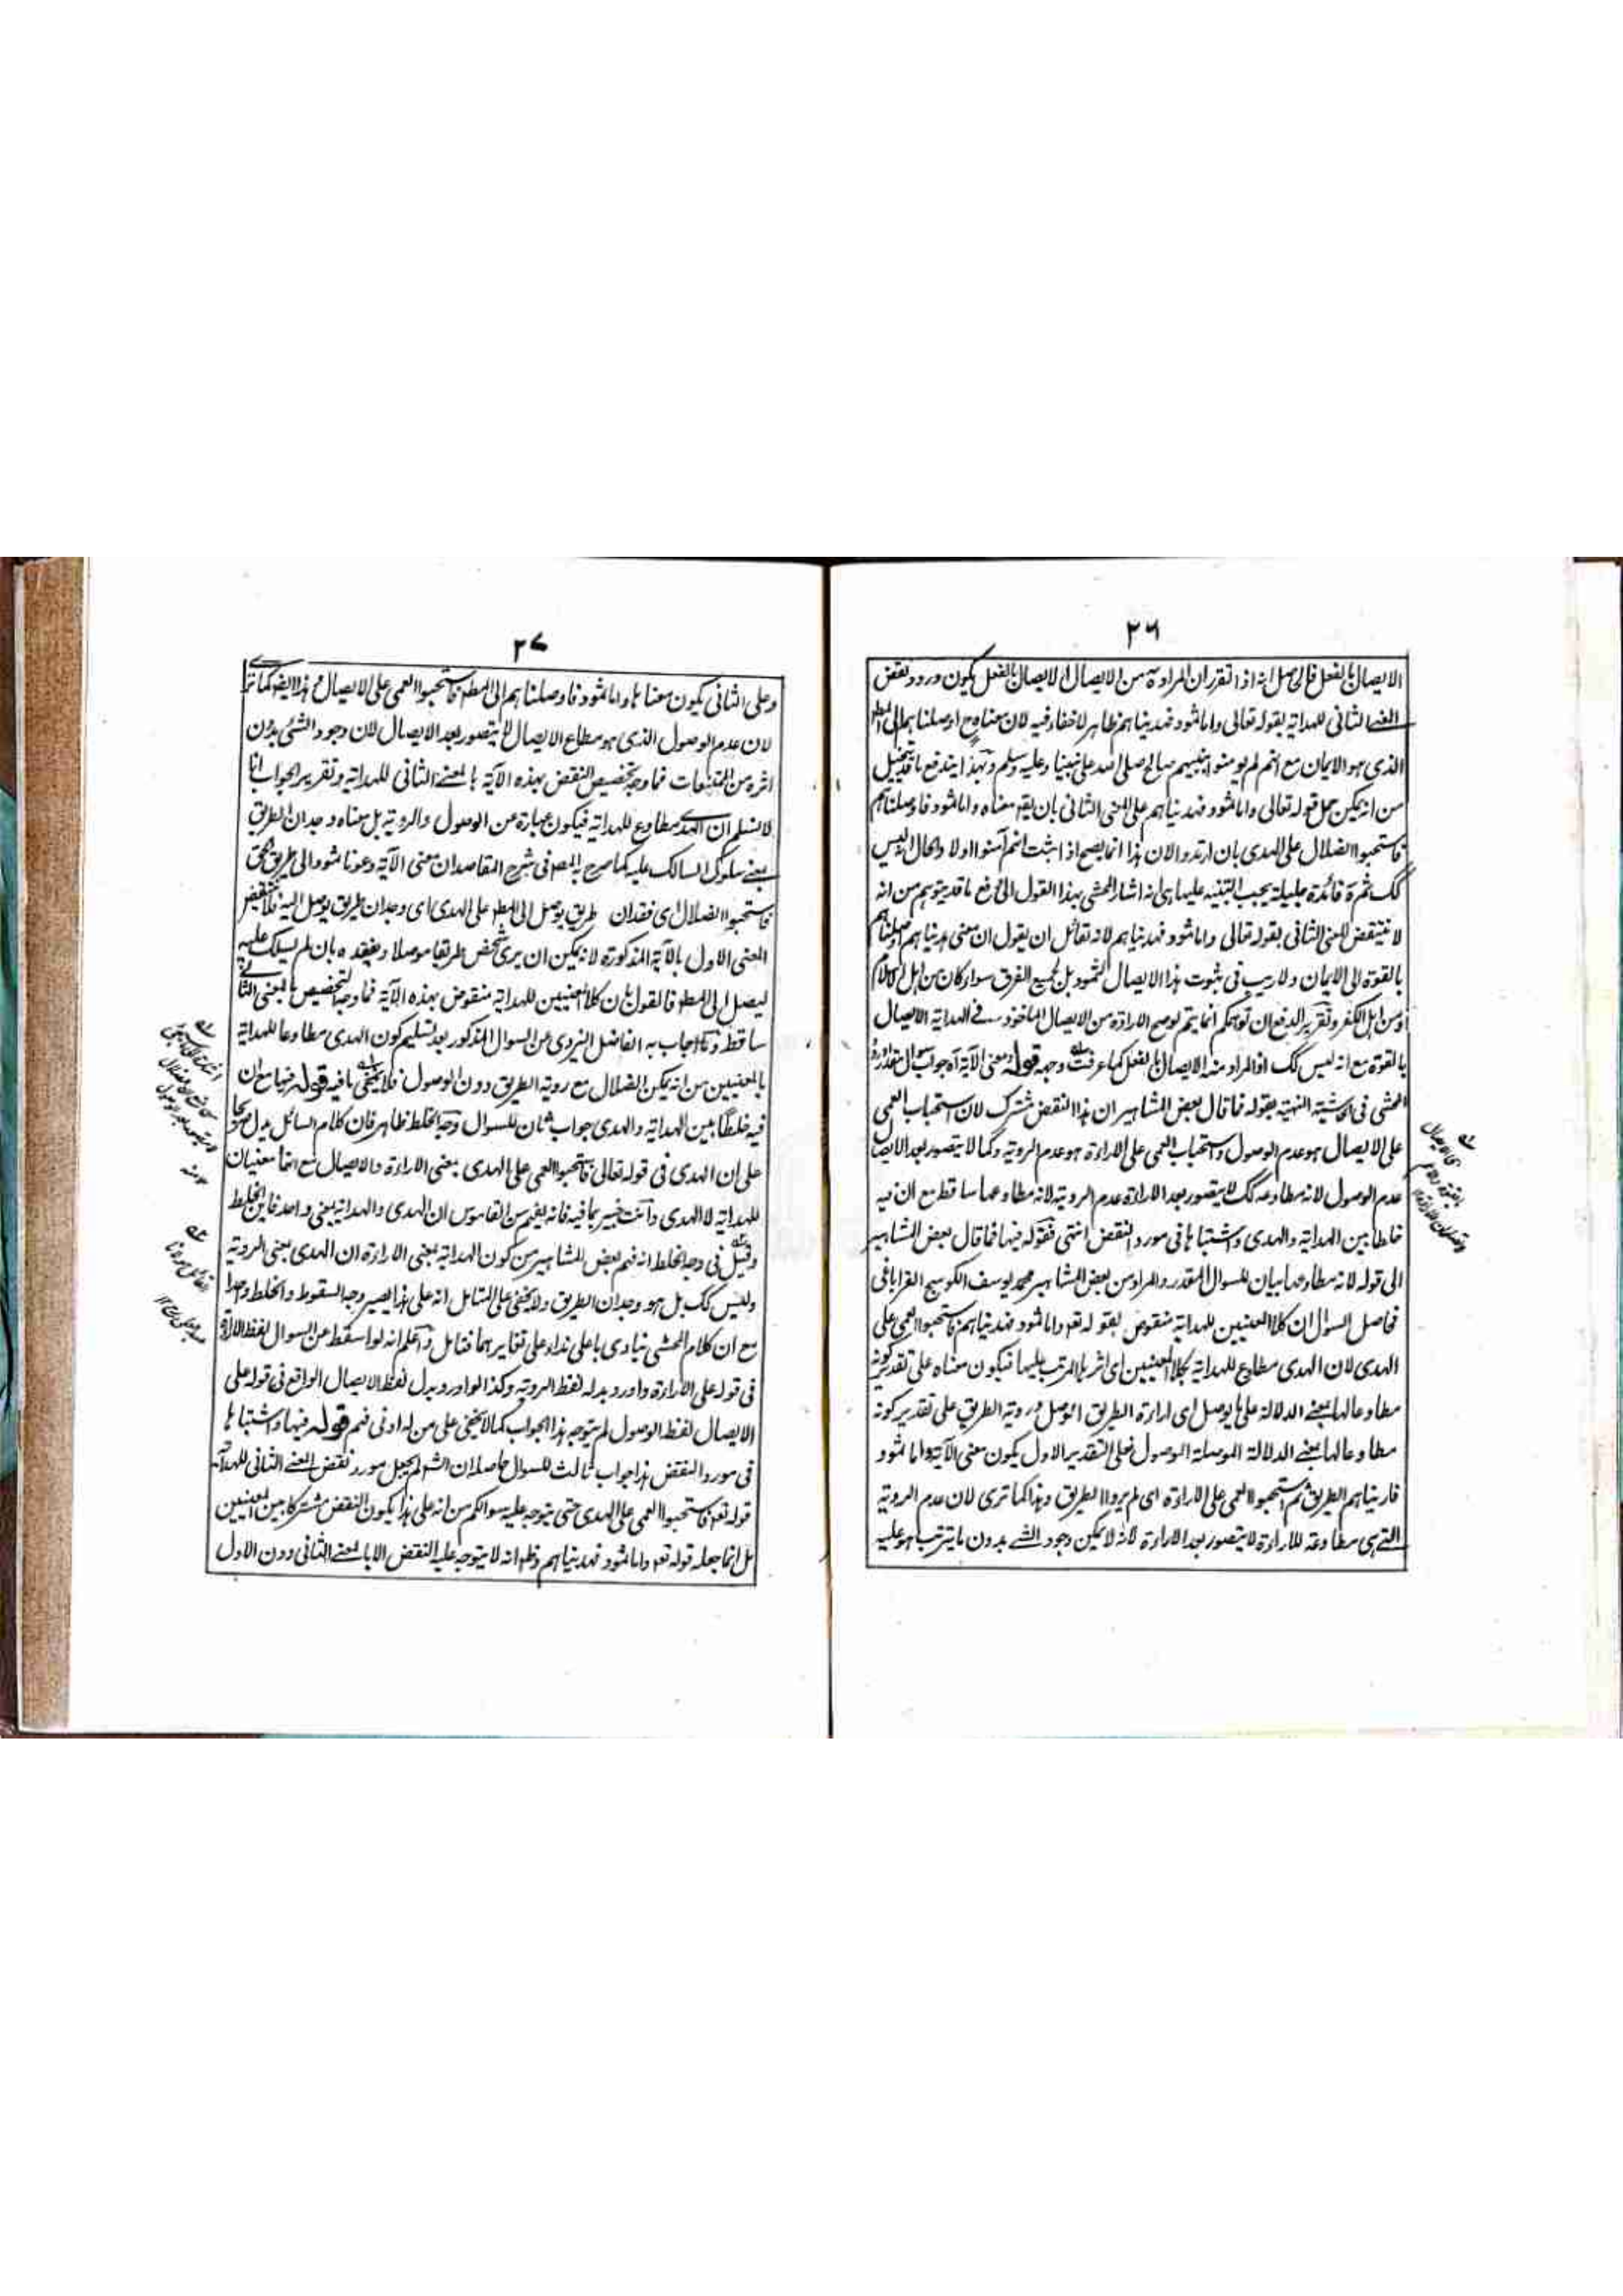 ٢٦
الايصال بالفعل فالحاصل انه اذا تقرر ان المراد من الايصال الايصال بالفعل يكون ورود نقض
المعنى الثانى للهداية بقوله تعالى واما ثمود فهديناهم ظاهر لا خفاء فيه لان معناه ح اوصلناهم الى المط
الذى هو الايمان مع انهم لم يومنوا بنبيهم صالح صلى الله على نبينا وعليه وسلم وبهذا يندفع ما قد يتخيل
من انه يمكن حمل قوله تعالى واما ثمود فهديناهم على المعنى الثانى بان يقه معناه واما ثمود فاوصلناهم
فاستحبوا الضلال على الهدى بان ارتدوا لان هذا انما يصح اذا ثبت انهم آمنوا اولا والحال ليس
كك ثمرة فائدة جليلة يجب التنبيه عليها هى انه اشار المحشى بهذا القول الى دفع ما قد يتوهم من انه
لا ينتقض المعنى الثانى بقوله تعالى واما ثمود فهديناهم لانه لقائل ان يقول ان معنى هديناهم اوصلناهم
بالقوة الى الايمان ولا ريب فى ثبوت هذا الايصال لثمود بل لجميع الفرق سواء كان من اهل الاسلام
او من اهل الكفر وتقرير الدفع ان توهمكم انما يتم لو صح الارادة من الايصال الماخوذ فى الهداية الايصال
بالقوة مع انه ليس كك اذ المراد منه الايصال بالفعل كما عرفت وجهه قوله ومعنى الآية آه جواب سوال مقدر اورده
المحشى فى الحاشية المنهية بقوله فما قال بعض المشاهير ان هذا النقض مشترك لان استحباب العمى
على الايصال هو عدم الوصول واستحباب العمى على الاراءة هو عدم الروية وكما لا يتصور بعد الايصال
عدم الوصول لانه مطاوعه كك لا يتصور بعد الاراءة عدم الروية لانه مطاوعها ساقط مع ان فيه
خلطا بين الهداية والهدى واشتباها فى مورد النقض انتهى فقوله فيها فما قال بعض المشاهير
الى قوله لانه مطاوعها بيان للسوال المقدر والمراد من بعض المشاهير محمد يوسف الكوسج القراباغى
فحاصل السوال ان كلا المعنيين للهداية منقوض بقوله تعه واما ثمود فهديناهم فاستحبوا العمى على
الهدى لان الهدى مطاوع للهداية بكلا المعنيين اى اثرها المرتب عليها فيكون معناه على تقدير كونه
مطاوعا لها بمعنى الدلالة على ما يوصل اى اراءة الطريق الموصل روية الطريق على تقدير كونه
مطاوعا لها بمعنى الدلالة الموصلة الوصول فعلى التقدير الاول يكون معنى الآية واما ثمود
فاريناهم الطريق ثم استحبوا العمى على الاراءة اى لم يروا الطريق وهذا كما ترى لان عدم الروية
التى هى مطاوعة للاراءة لا يتصور بعد الاراءة لانه لا يمكن وجود الشى بدون ما يترتب هو عليه
٢٧
وعلى الثانى يكون معناها واما ثمود فاوصلناهم الى المط فاستحبوا العمى على الايصال وهذا ايضه كما ترى
لان عدم الوصول الذى هو مطاوع الايصال لا يتصور بعد الايصال لان وجود الشئ بدون
اثره من الممتنعات فما وجه تخصيص النقض بهذه الآية بالمعنى الثانى للهداية وتقرير الجواب انا
لا نسلم ان الهدى مطاوع للهداية فيكون عبارة عن الوصول والروية بل معناه وجدان الطريق
بمعنى سلوك السالك عليه كما صرح به المصه فى شرح المقاصد ان معنى الآية دعونا ثمود الى طريق الحق
فاستحبوا الضلال اى فقدان طريق يوصل الى المط على الهدى اى وجدان طريق يوصل اليه فلا ينتقض
المعنى الاول بالآية المذكورة لانه يمكن ان يرى شخص طريقا موصلا ويفقده بان لم يسلك عليه
ليصل الى المط فالقول بان كلا المعنيين للهداية منقوض بهذه الآية فما وجه التخصيص بالمعنى الثانى
ساقط وما اجاب به الفاضل اليزدى عن السوال المذكور بعد تسليم كون الهدى مطاوعا للهداية
بالمعنيين من انه يمكن الضلال مع روية الطريق دون الوصول فلا يخفى ما فيه قوله فيها مع ان
فيه خلطا بين الهداية والهدى جواب ثان للسوال وجه الخلط ظاهر فان كلام السائل يدل صريحا
على ان الهدى فى قوله تعالى فاستحبوا العمى على الهدى بمعنى الاراءة والايصال مع انها معنيان
للهداية لا الهدى وانت خبير بما فيه فانه يفهم من القاموس ان الهدى والهداية بمعنى واحد فاين الخلط
وقيل فى وجه الخلط انه فهم بعض المشاهير من كون الهداية بمعنى الاراءة ان الهدى بمعنى الروية
وليس كك بل هو وجدان الطريق ولا يخفى على المتامل انه على هذا يصير وجه السقوط والخلط واحدا
مع ان كلام المحشى ينادى باعلى نداء على تغايرهما فتامل واعلم انه لو اسقط عن السوال لفظ الاراءة
فى قوله على الاراءة واورد بدله لفظ الروية وكذا لو اورد بدل لفظ الايصال الواقع فى قوله على
الايصال لفظ الوصول لم يتوجه هذا الجواب كما لا يخفى على من له ادنى فهم قوله فيها واشتباها
فى مورد النقض هذا جواب ثالث للسوال حاصله ان الشه لم يجعل مورد نقض المعنى الثانى للهداية
قوله تعه فاستحبوا العمى على الهدى حتى يتوجه عليه سوالكم من انه على هذا يكون النقض مشتركا بين المعنيين
بل انما جعله قوله تعه واما ثمود فهديناهم وظه انه لا يتوجه عليه النقض الا بالمعنى الثانى دون الاول